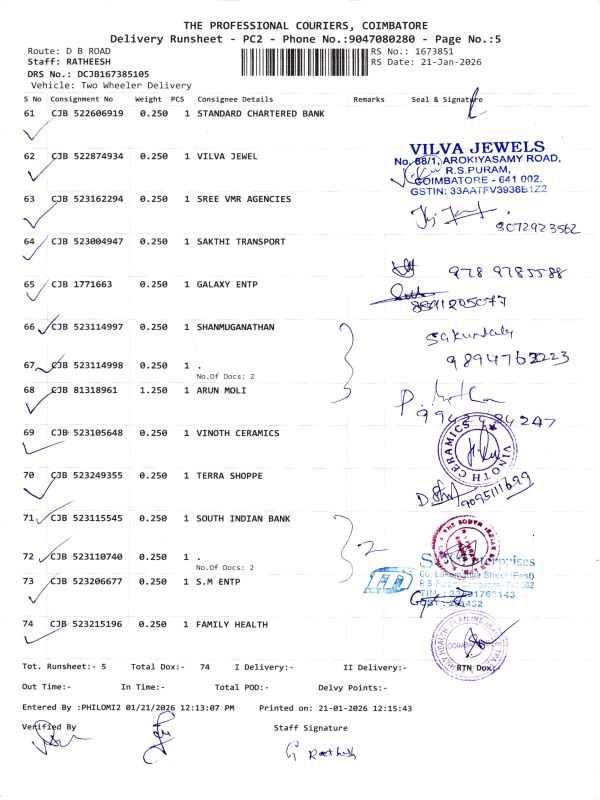 THE PROFESSIONAL COURIERS, COIMBATORE
Delivery Runsheet - PC2 - Phone No.:9047080280 - Page No.:5
Route: D B ROAD RS No.: 1673851
Staff: RATHEESH RS Date: 21-Jan-2026
DRS No.: DCJB167385105
Vehicle: Two Wheeler Delivery
S No Consignment No Weight PCS Consignee Details Remarks Seal & Signature
61 CJB 522606919 0.250 1 STANDARD CHARTERED BANK
62 CJB 522874934 0.250 1 VILVA JEWEL
VILVA JEWELS
No. 88/1, AROKIYASAMY ROAD,
R.S.PURAM,
COIMBATORE - 641 002.
GSTIN: 33AATFV3936B1Z2
63 CJB 523162294 0.250 1 SREE VMR AGENCIES
8072923562
64 CJB 523004947 0.250 1 SAKTHI TRANSPORT
9789785588
65 CJB 1771663 0.250 1 GALAXY ENTP
8891205077
66 CJB 523114997 0.250 1 SHANMUGANATHAN
Sakuntala
67 CJB 523114998 0.250 1 .
9894763223
No.Of Docs: 2
68 CJB 81318961 1.250 1 ARUN MOLI
69 CJB 523105648 0.250 1 VINOTH CERAMICS
VINOTH CERAMICS
70 CJB 523249355 0.250 1 TERRA SHOPPE
9095111699
71 CJB 523115545 0.250 1 SOUTH INDIAN BANK
2
72 CJB 523110740 0.250 1 .
No.Of Docs: 2
73 CJB 523206677 0.250 1 S.M ENTP
Enterprises
Street (East)
R.S. Puram, Coimbatore - 641 002
74 CJB 523215196 0.250 1 FAMILY HEALTH
Tot. Runsheet:- 5 Total Dox:- 74 I Delivery:- II Delivery:- RTN Dox:-
Out Time:- In Time:- Total POD:- Delvy Points:-
Entered By :PHILOMI2 01/21/2026 12:13:07 PM Printed on: 21-01-2026 12:15:43
Verified By Staff Signature
G Rathesh